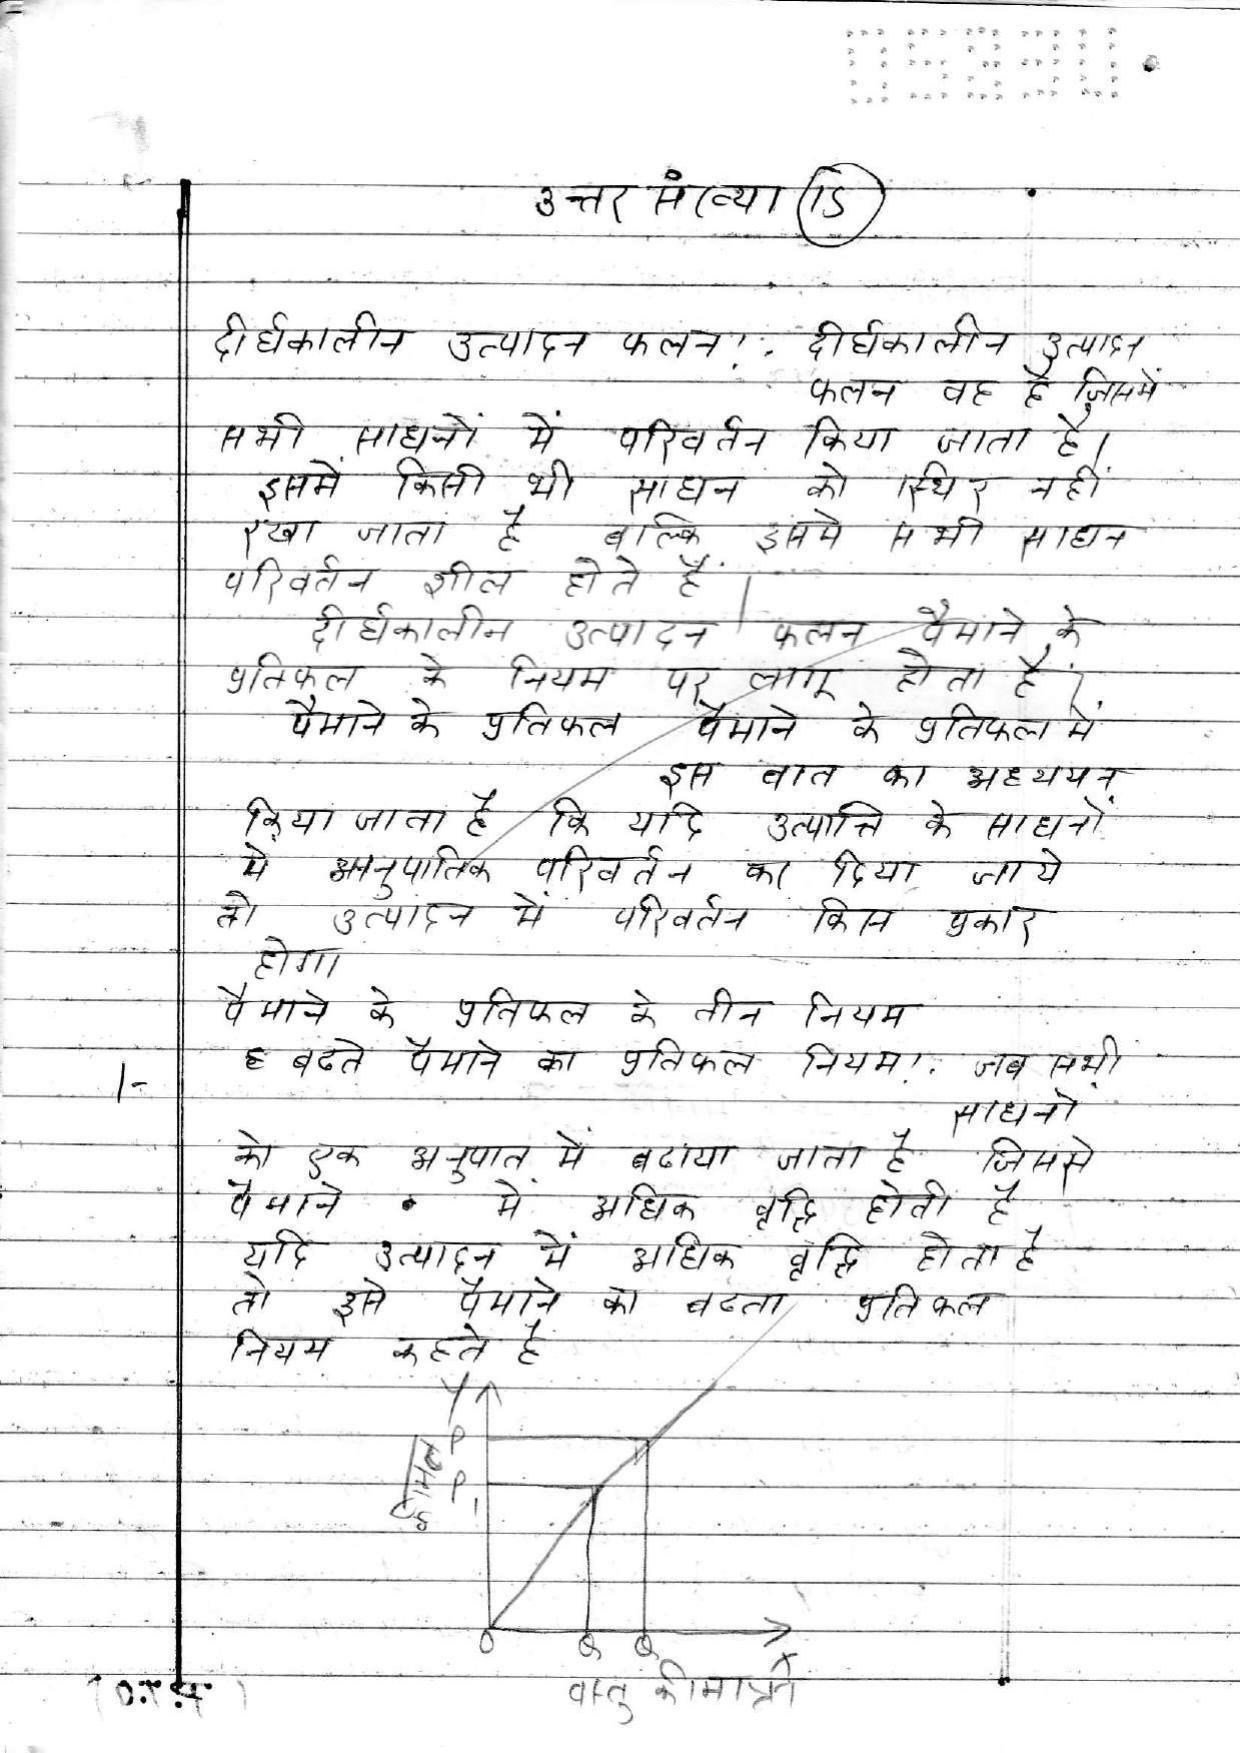 उत्तर संख्या 15
दीर्घकालीन उत्पादन फलन:. दीर्घकालीन उत्पादन
फलन वह है जिसमें
सभी साधनों में परिवर्तन किया जाता है।
इसमें किसी भी साधन को स्थिर नहीं
रखा जाता है बल्कि इसमे सभी साधन
परिवर्तन शील होते हैं।
दीर्घकालीन उत्पादन फलन पैमाने के
प्रतिफल के नियम पर लागू होता है।
पैमाने के प्रतिफल पैमाने के प्रतिफल में
इस बात का अध्ययन
किया जाता है कि यदि उत्पत्ति के साधनों
मे आनुपातिक परिवर्तन कर दिया जाये
तो उत्पादन में परिवर्तन किस प्रकार
होगा
पैमाने के प्रतिफल के तीन नियम
1- बढते पैमाने का प्रतिफल नियम:. जब सभी
साधनो
को एक अनुपात में बढाया जाता है जिससे
पैमाने में अधिक वृद्धि होती है
यदि उत्पादन में अधिक वृद्धि होता है
तो इसे पैमाने का बढता प्रतिफल
नियम कहते है
Y
P
कीमत
P1
O Q Q
X
वस्तु की मात्रा